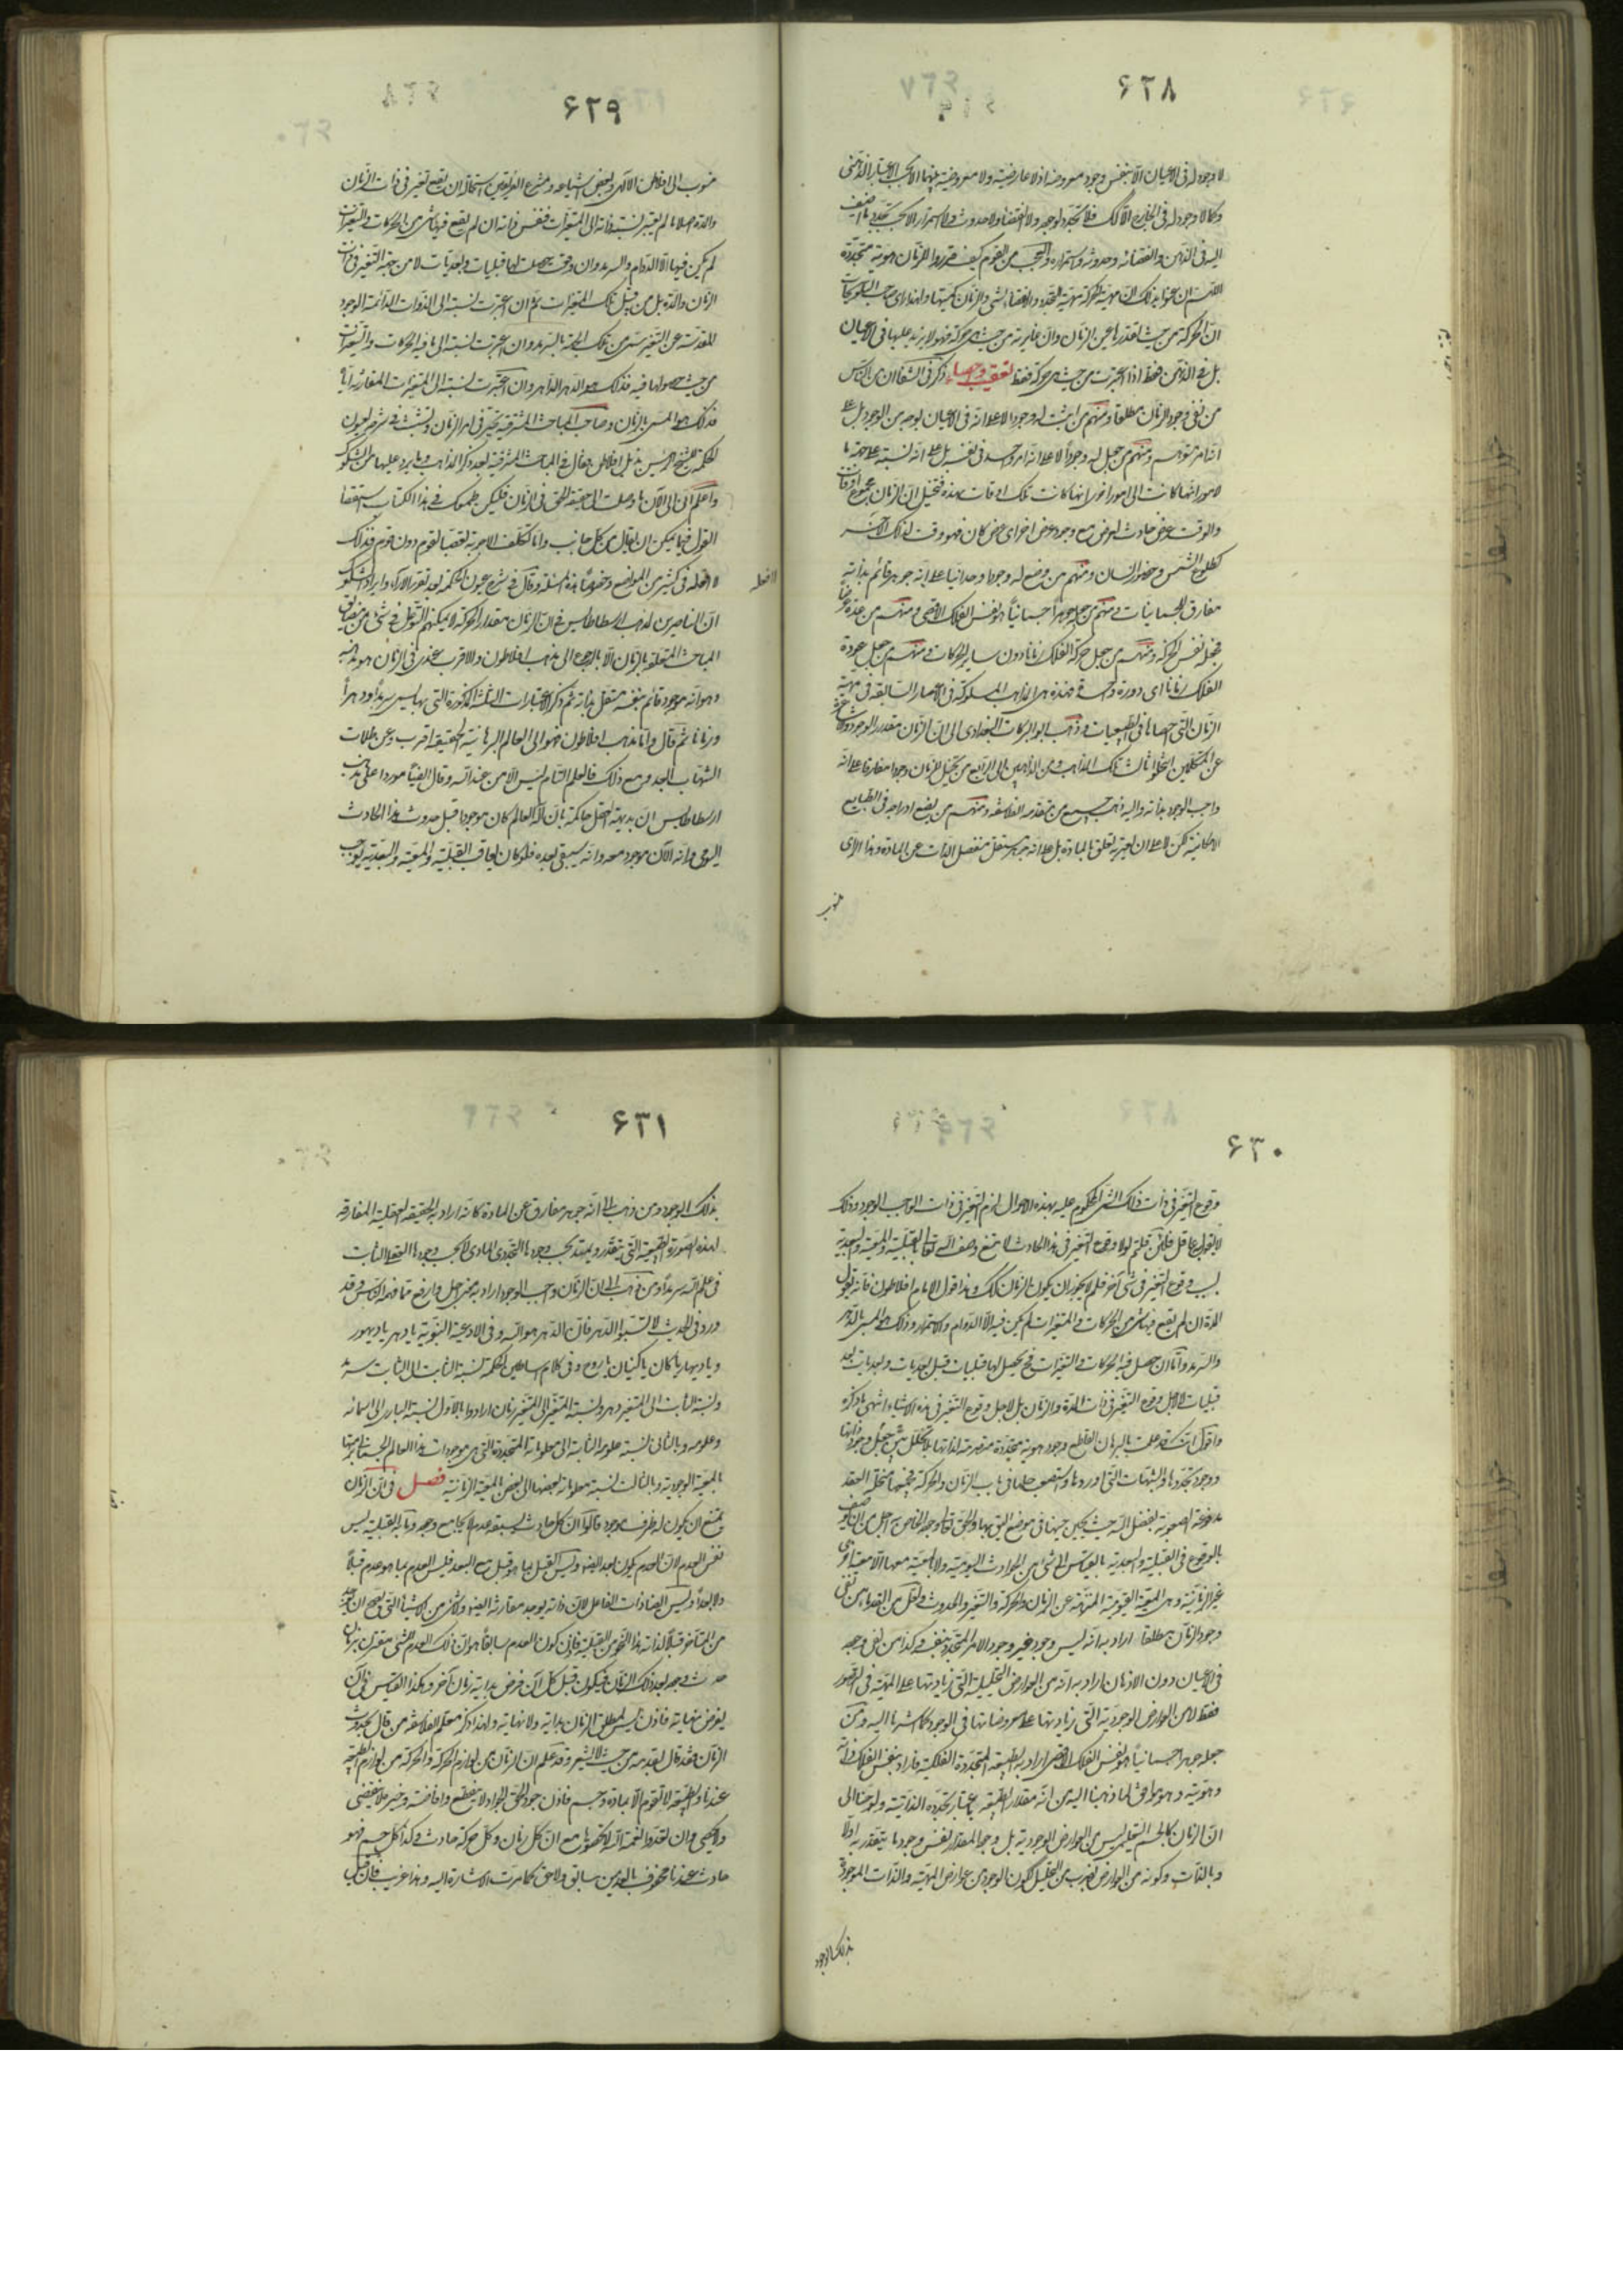 ٤٢٨
لا وجود له فى الاعيان الا بنفس وجود معروضه اذ لا عارضية ولا معروضية بينهما الا بحسب الاعتبار الذهنى
وكما لا وجود له فى الخارج الا كذلك فلا تجدد لوجوده ولا انقضاء ولا حدوث ولا استمرار الا بحسب تجدد ما اضيف
اليه فى الذهن وانقضائه وحدوثه واستمراره والعجب من القوم كيف قرروا للزمان هوية متجددة
اللهم ان عنوا بذلك ان ماهية الحركة ماهية التجدد والانقضاء لشىء والزمان كميتها ولهذا راى صاحب التلويحات
ان الحركة من حيث تقدرها عين الزمان وان غايرته من حيث هى حركة فهو لا يزيد عليها فى الاعيان
بل فى الذهن فقط اذا اعتبرت من حيث هى حركة فقط تعقيب واحصاء ذكر فى الشفا ان من الناس
من نفى وجود الزمان مطلقا ومنهم من اثبت له وجودا لا على انه فى الاعيان بوجه من الوجوه بل على
انه امر متوهم ومنهم من جعل له وجودا لا على انه امر واحد فى نفسه بل على انه نسبة على جهة ما
لامور ايها كانت الى امور اخرى ايها كانت تلك اوقات لهذه فتخيل ان الزمان مجموع اوقات
والوقت عرض حادث يعرض مع وجود عرض اخر اى عرض كان فهو وقت لذلك الاخر
كطلوع الشمس وحضور انسان ومنهم من وضع له وجودا وحدانيا على انه جوهر قائم بذاته
مفارق للجسمانيات ومنهم من جعله جوهرا جسمانيا هو نفس الفلك الاقصى ومنهم من عده عرضا
فجعله نفس الحركة ومنهم من جعل حركة الفلك زمانا دون ساير الحركات ومنهم من جعل عودة
الفلك زمانا اى دورة واحدة فهذه هى المذاهب المسلوكة فى الاعصار السابقة فى مهية
الزمان التى احصاها فى الطبيعيات وذهب ابو البركات البغدادى الى ان الزمان مقدار الوجود والاشاعرة
عن المتكلمين انتحلوا ثالث تلك المذاهب ومن الذاهبين الى الرابع من يخيل للزمان وجودا مفارقا على انه
واجب الوجود بذاته واليه ذهب جمع من متقدمة الفلاسفة ومنهم من يضع ادراجه فى الطبايع
الامكانية لكن لا على ان يعتريه تعلق بالمادة بل على انه جوهر مستقل منفصل الذات عن المادة وهذا الراى
منسوب
٤٢٩
منسوب الى افلاطن الالهى وبعض اشياعه ومشرع الفريقين استحالة ان يقع تغير فى ذات الزمان
والمدة اصلا ما لم يعتبر نسبة ذاته الى المتغيرات فنفس ذاته ان لم يقع فيها شىء من الحركات والتغيرات
لم يكن فيها الا الدوام والسرمد وان وقعت يحصل لها قبليات وبعديات لا من جهة التغير فى ذات
الزمان والمدة بل من قبل تلك المتغيرات ثم ان اعتبرت نسبته الى الذوات الدائمة الوجود
المقدسة عن التغير سمى من تلك الجهة بالسرمد وان اعتبرت نسبته الى ما فيه الحركات والتغيرات
من حيث حصولها فيه فذلك هو الدهر الداهر وان اعتبرت نسبته الى المتغيرات المقارنة اياه
فذلك هو المسمى بالزمان وصاحب المباحث المشرقية تحير فى امر الزمان وتشبث فى شرح عيون
الحكمة للشيخ الرئيس بذيل افلاطن وقال فى المباحث المشرقية بعد ذكر المذاهب وما يرد عليها من الشكوك
واعلم انى الى الآن ما وصلت الى حقيقة الحق فى الزمان فليكن طمعك فى هذا الكتاب استقصا
القول فيما يمكن ان يقال من كل جانب واما تكلف الاجوبة تعصبا لقوم دون قوم فذلك
لا افعله فى كثير من المواضع وخصوصا هذه المسئلة وقال فى شرح عيون الحكمة بعد تقرير الاراء وايراد الشكوك
لا افعله
ان الناصرين لمذهب ارسطاطاليس فى ان الزمان مقدار الحركة لا يمكنهم التوغل فى شىء من مضايق
المباحث المتعلقة بالزمان الا بالرجوع الى مذهب افلاطون والاقرب عندى فى الزمان هو مذهبه
وهو انه موجود قائم بنفسه مستقل بذاته ثم ذكر الاعتبارات الثلثة المذكورة التى بها يسمى سرمدا ودهرا
وزمانا ثم قال واما مذهب افلاطون فهو الى العالم البرهانية الحقيقية اقرب وعن ظلمات
الشبهات ابعد ومع ذلك فالعلم التام ليس الا من عند الله وقال ايضا موردا على مذهب
ارسطاطاليس ان بديهة العقل حاكمة بان اله العالم كان موجودا قبل حدوث هذا الحادث
اليومى وانه الآن موجود معه وانه سيبقى بعده فلو كان تعاقب القبلية والمعية والبعدية يوجب
٤٣٠
وقوع التغير فى ذات ذلك الشىء المحكوم عليه بهذه الاحوال لزم التغير فى ذات الواجب الوجود وذلك
لا يقوله عاقل فلئن قلتم لولا وقوع التغير فى هذا الحادث لامتنع وصف الله تعالى بالقبلية والمعية والبعدية
بسبب وقوع التغير فى شىء آخر فلم لا يجوز ان يكون الزمان كذلك وهذا قول الامام افلاطون فانه يقول
المدة ان لم يقع فيها شىء من الحركات والمتغيرات لم يكن فيه الا الدوام والاستمرار وذلك هو المسمى بالدهر
والسرمد واما ان حصل فيه الحركات والتغيرات فح يحصل لها قبليات قبل بعديات وبعديات بعد
قبليات لا لاجل وقوع التغير فى ذات المدة والزمان بل لاجل وقوع التغير فى هذه الاشياء انتهى ما ذكره
واقول انك قد علمت بالبرهان القاطع وجود هوية متجددة متصرمة لذاتها بلا تخلل جعل بين وجود ذاتها
ووجود تجددها والشبهات التى اوردها واستصعب حلها فى باب الزمان والحركة فجميعها منحلة العقد
مدفوعة الصعوبة بفضل الله حيث يحين حينها فى موضع اليق بها والحق تعالى وجهه الخاص به اجل من ان يوصف
بالوقوع فى القبلية والبعدية بالقياس الى شىء من الحوادث اليومية ولا بالمعية معها الا معية اخرى
غير الزمانية وهى المعية القيومية المنزهة عن الزمان والحركة والتغير والحدوث ولعل من القدماء من نفى
وجود الزمان مطلقا اراد به انه ليس وجود غير وجود الامر المتجدد بنفسه وكذا من نفى وجوده
فى الاعيان دون الاذهان اراد به انه من العوارض التحليلية التى زيادتها على المهية فى التصور
فقط لا من العوارض الوجودية التى زيادتها على معروضاتها فى الوجود كما اشرنا اليه ومن
جعله جوهرا جسمانيا هو نفس الفلك الاقصى اراد به الطبيعة المتجددة الفلكية فاراد بنفس الفلك ذاته
وهويته وهو موافق لما ذهبنا اليه من انه مقدار الطبيعة باعتبار تجدده الذاتية ولوحنا الى
ان الزمان كالجسم التعليمى ليس من العوارض الوجودية بل وجود المقدار نفس وجود ما يتقدر به اولا
وبالذات وكونه من العوارض بضرب من التحليل ككون الوجود من عوارض المهية والذات الموجودة
بذلك الوجود
٤٣١
بذلك الوجود ومن ذهب الى انه جوهر مفارق عن المادة كانه اراد به الحقيقة العقلية المفارقة
لهذه الصورة الطبيعية التى يتقدر ويمتد بحسب وجودها التجددى المادى لا بحسب وجودها العقلى الثابت
فى علم الله سرمدا ومن ذهب الى ان الزمان واجب الوجود اراد به معنى اجل وارفع مما فهمه الناس وقد
ورد فى الحديث لا تسبوا الدهر فان الدهر هو الله وفى الادعية النبوية يا دهر يا ديهور
ويا ديهار يا كان يا كينان يا روح وفى كلام اساطين الحكمة نسبة الثابت الى الثابت سرمد
ونسبة الثابت الى المتغير دهر ونسبة المتغير الى المتغير زمان ارادوا بالاول نسبة البارى الى اسمائه
وعلومه وبالثانى نسبة علومه الثابتة الى معلوماته المتجددة التى هى موجودات هذا العالم الجسمانى برمتها
بالمعية الوجودية وبالثالث نسبة معلوماته بعضها الى بعض بالمعية الزمانية فصل فى ان الزمان
يمتنع ان يكون له طرف موجود قالوا ان كل حادث يسبقه عدم لا يجامع وجوده وتلك القبلية ليس
نفس العدم لان العدم يكون بعد ايضا وليس القبل بما هو قبل مع البعد فليس العدم بما هو عدم قبلا
ولا بعدا وليس ايضا ذات الفاعل لان ذاته يوجد مقارنة ايضا ولا شىء من الاشياء التى يصح ان توجد
من المتأخر قبلا لذاته هذا النحو من القبلية فاذن كون العدم سابقا هو ان ذلك العدم للشىء مقترن بزمان
حدث وجوده بعد ذلك الزمان فيكون قبل كل آن فرض بداية زمان آخر وهكذا القياس فى آن
يفرض نهايته فاذن ليس لمطلق الزمان بداية ولا نهاية ولهذا ذكر معلم الفلاسفة من قال بحدوث
الزمان فقد قال بقدمه من حيث لا يشعر وقد علم ان الزمان من لوازم الحركة والحركة من لوازم الطبيعة
عندنا والطبيعة لا تقوم الا بمادة وجسم فاذن جود الحق الجواد لا ينقطع وافاضته وخيره لا ينقضى
ولا يحصى وان تعدوا نعمة الله لا تحصوها مع ان كل زمان وكل حركة حادث وكذا كل جسم فهو
حادث عندنا محفوف بالعدمين سابق ولاحق كما مرت الاشارة اليه وهذا غريب فان قيل